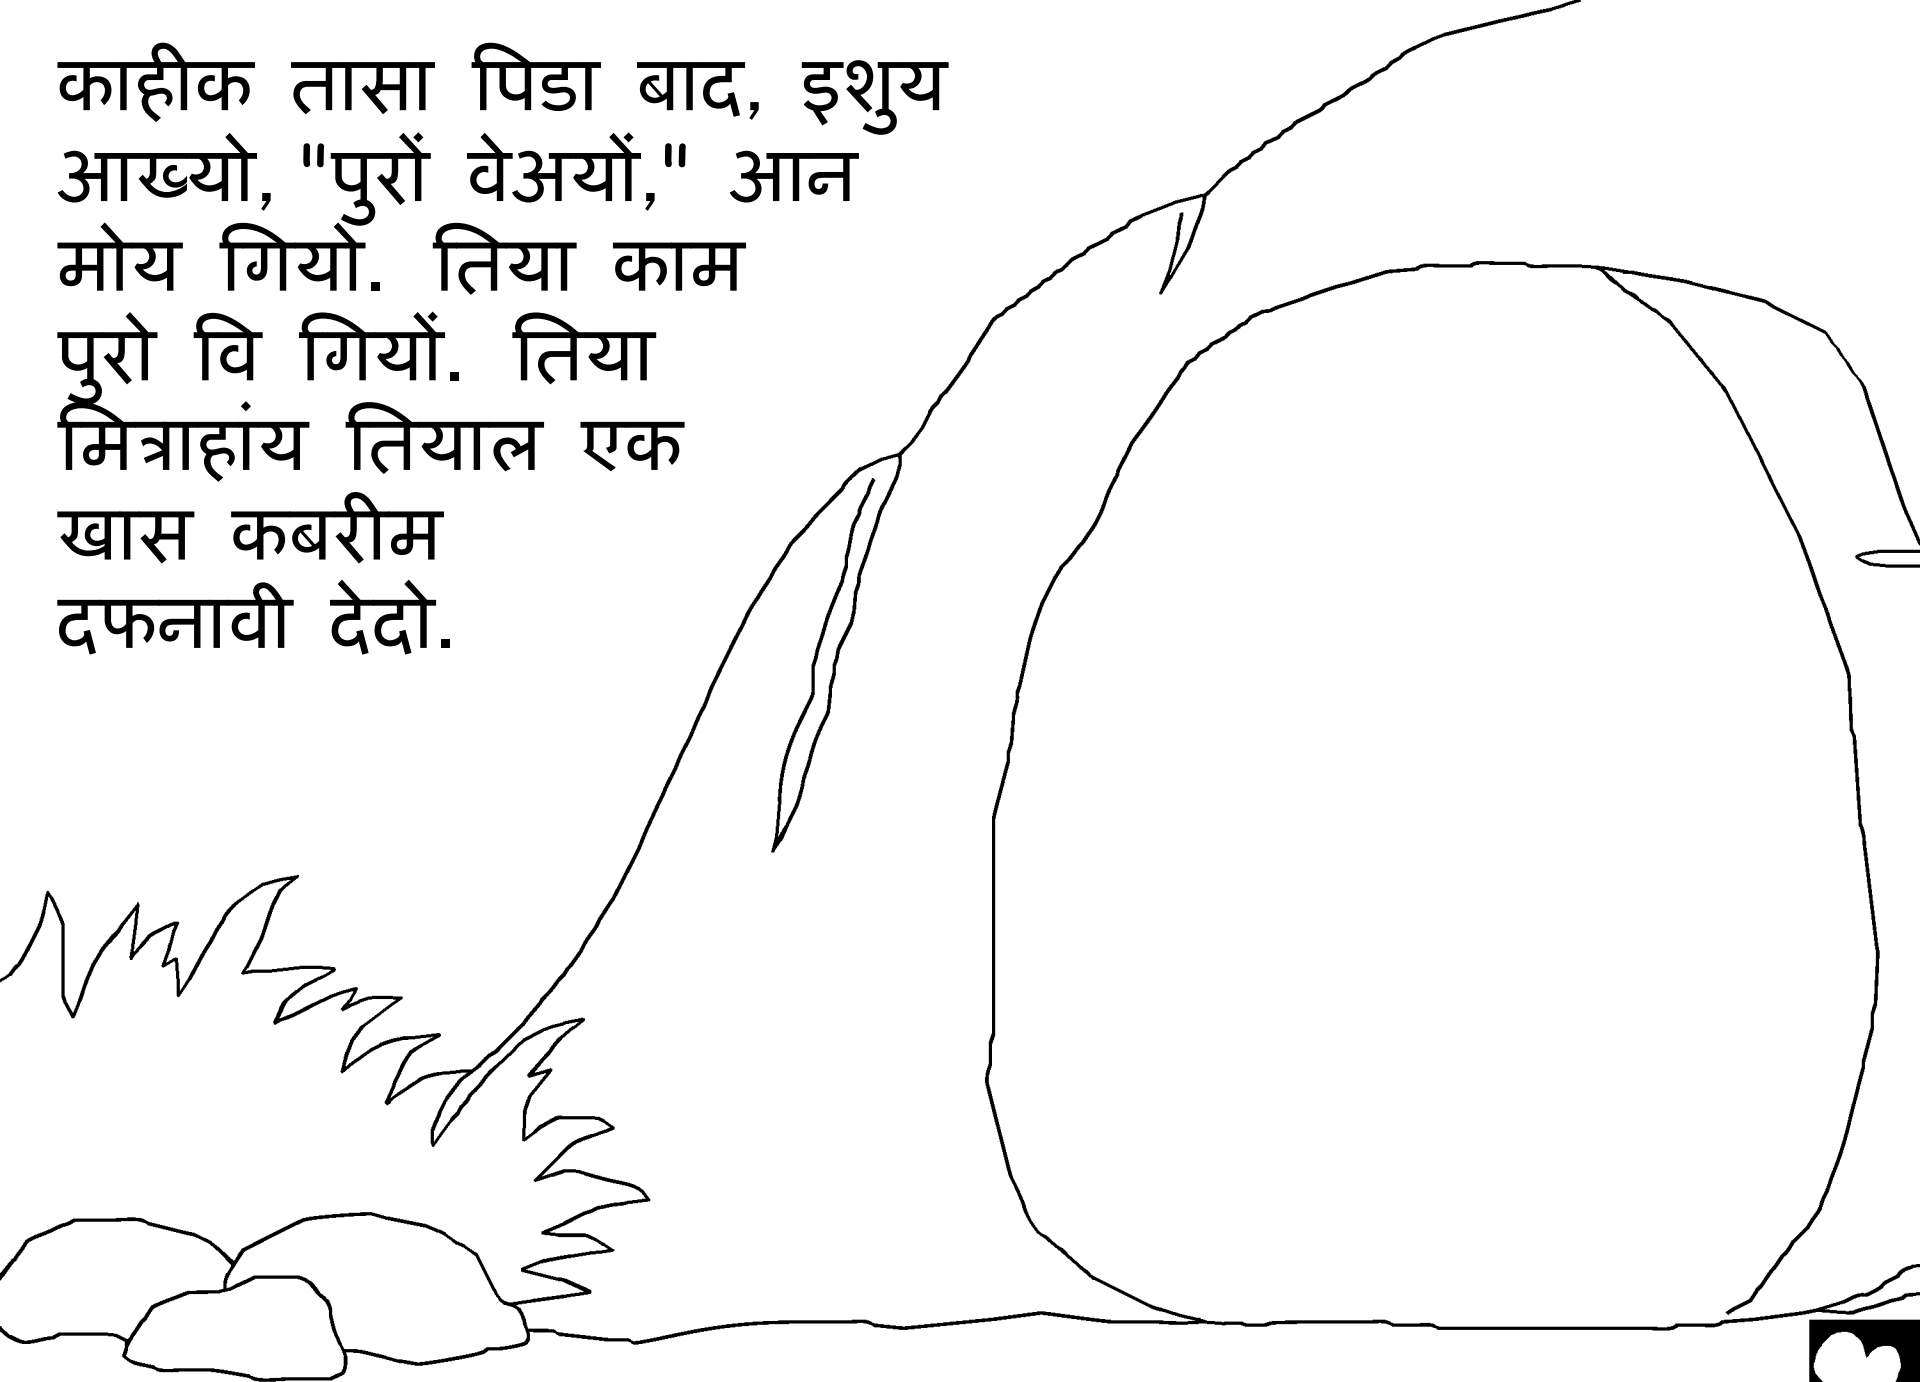 काहीक तासा पिडा बाद, इशुय
आख्यो, "पुरों वेअयों," आन
मोय गियो. तिया काम
पुरो वि गियों. तिया
मित्राहांय तियाल एक
खास कबरीम
दफनावी देदो.